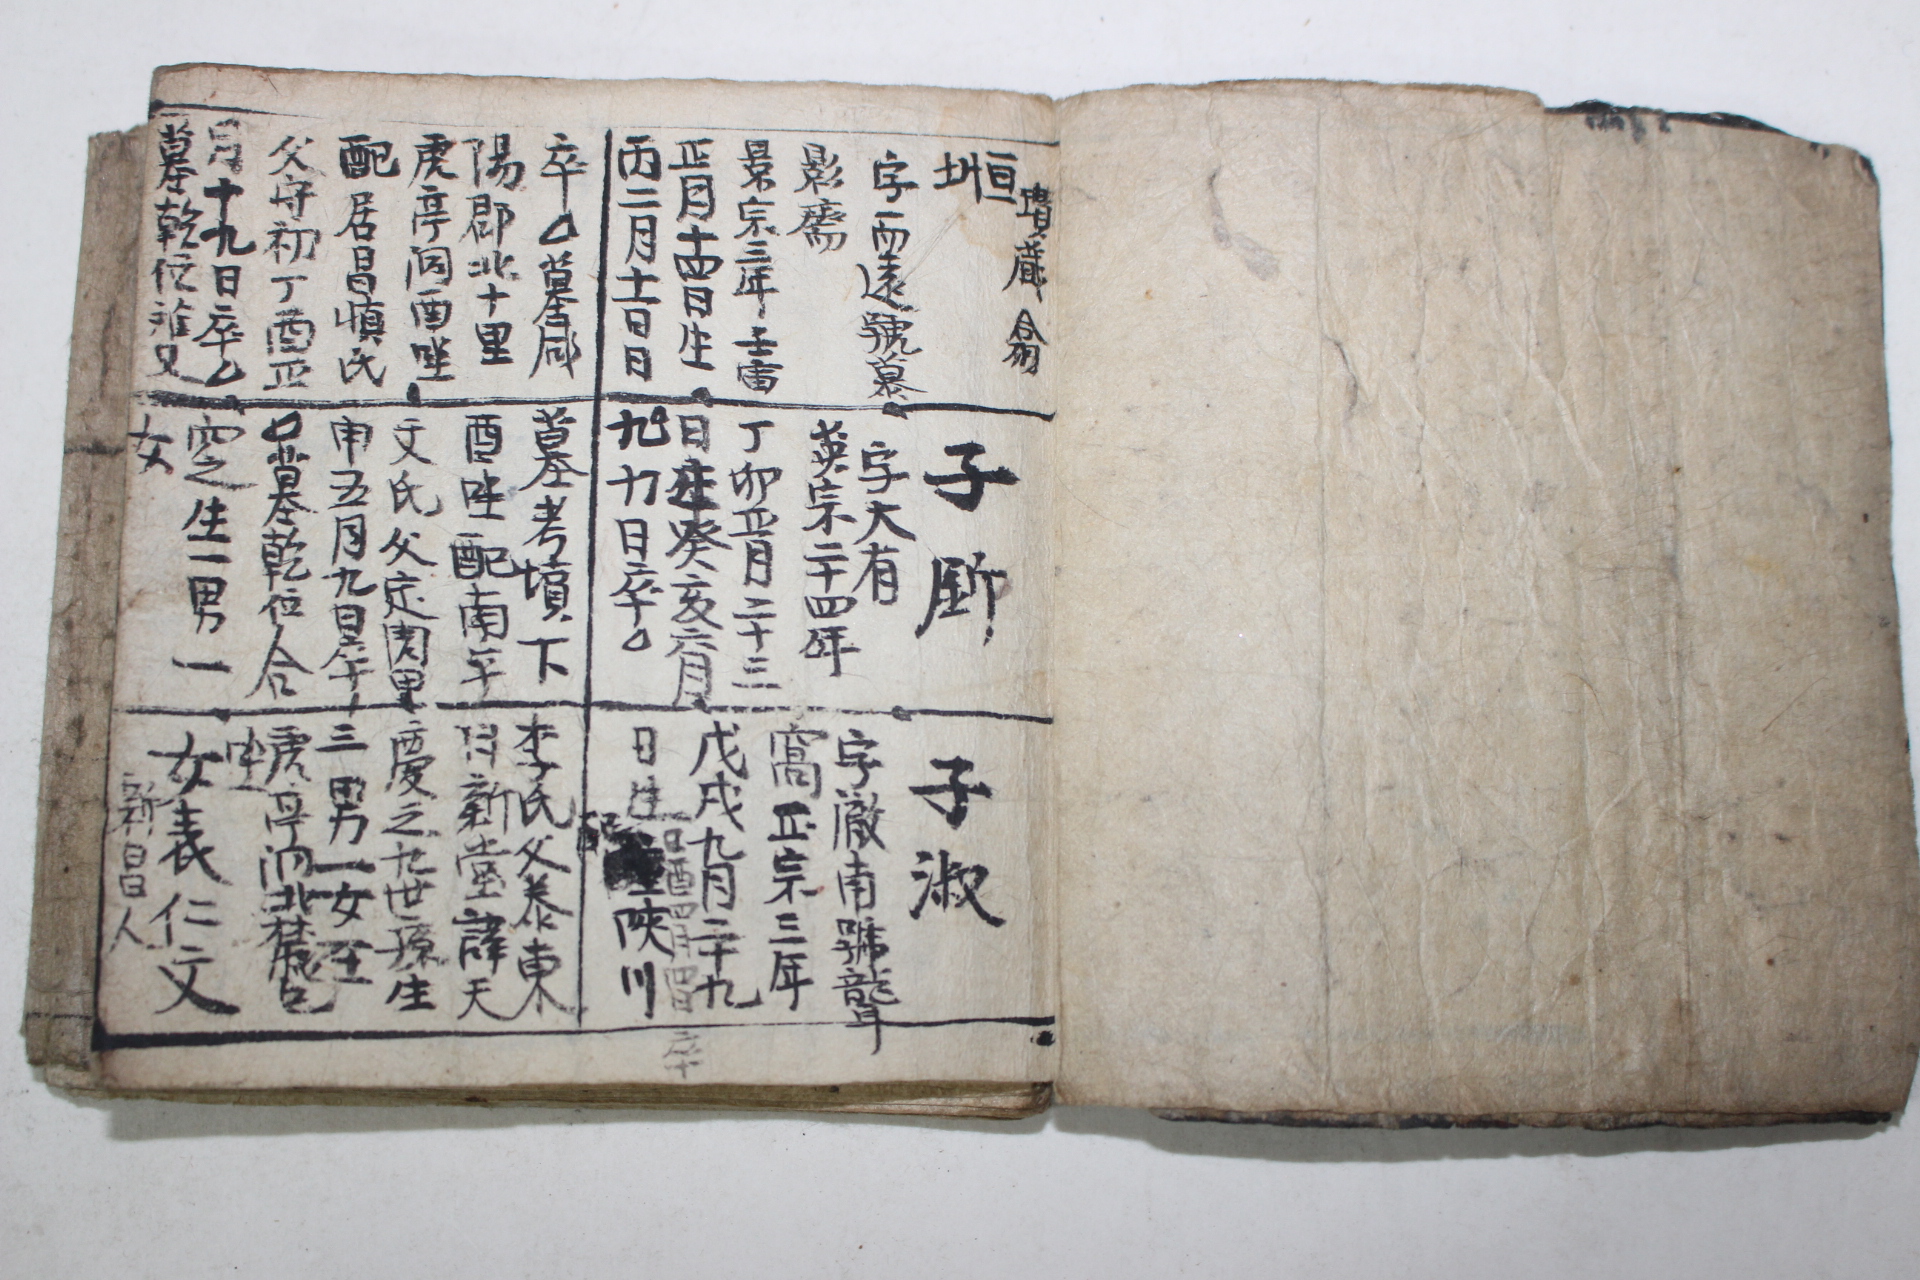 恒
字而遠號慕
影齋
景宗三年壬寅
正月十四日生
丙二月十二日日
卒墓咸
陽郡北十里
虎亭洞酉坐
配居昌愼氏
父守初丁酉正
月十九日卒
墓乾位
子
字大有
英宗二十四年
丁卯正月二十三
日生癸亥六月
九十日卒
墓考墳下
酉坐配南平
文氏父定周甲
申五月九日生午
墓乾位合
窆之生一男一
女
子淑
字巖南號龍
窩正宗三年
戊戌九月二十九
日生
酉四月四日卒
配陜川
李氏父泰東
新堂諱天
慶之九世孫生
三男一女墓
虎亭洞北麓
坐
女義仁文
新昌人